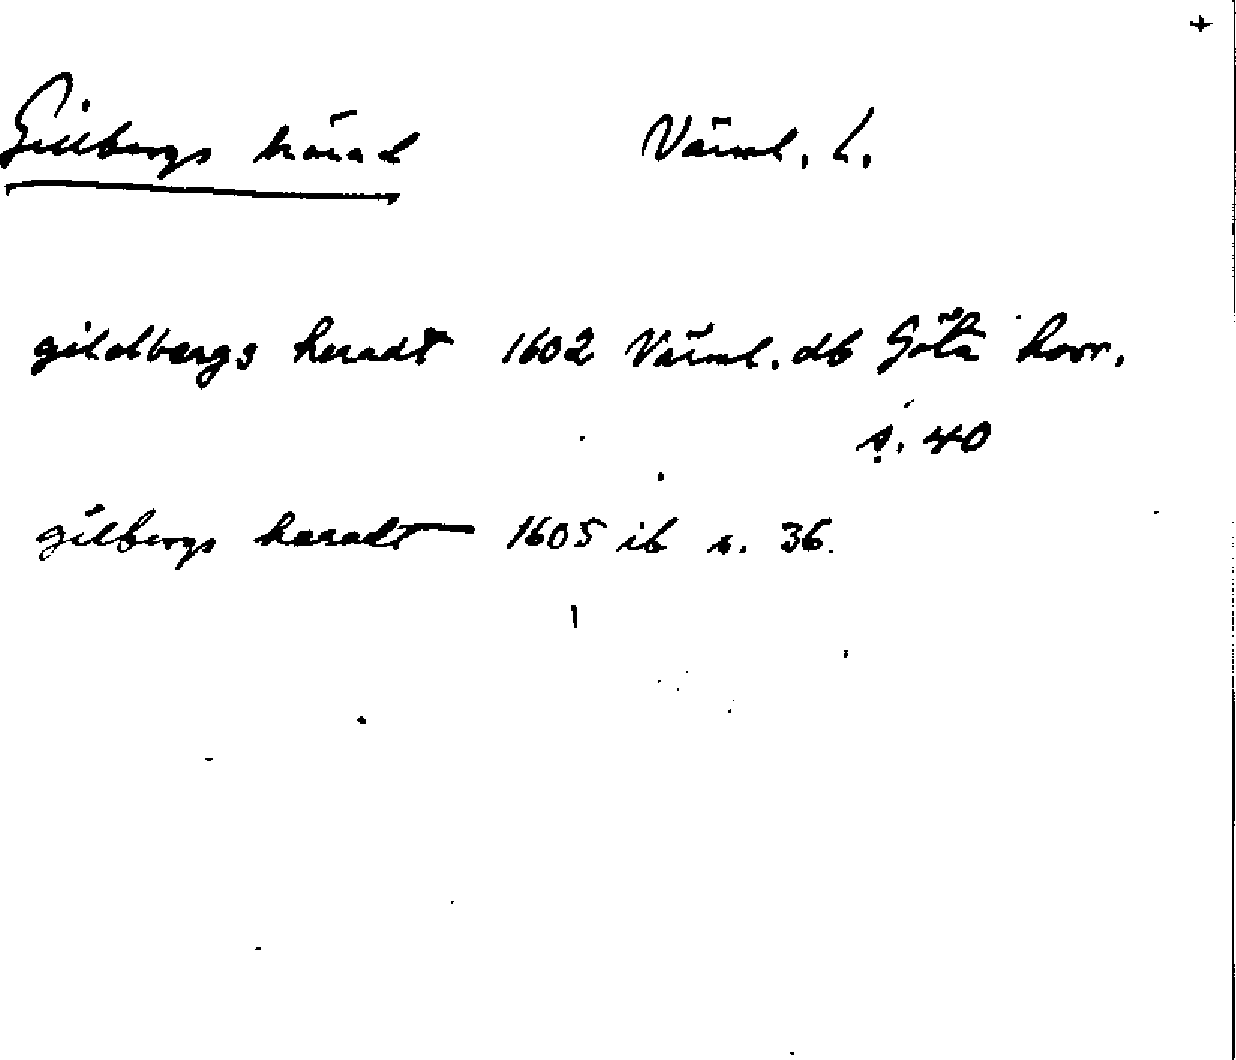 +
Gillbergs härad Värml. L.
gildbergs heradt 1602 Värml. db Göta hovr.
s. 40
gilbergs haradt 1605 ib s. 36.